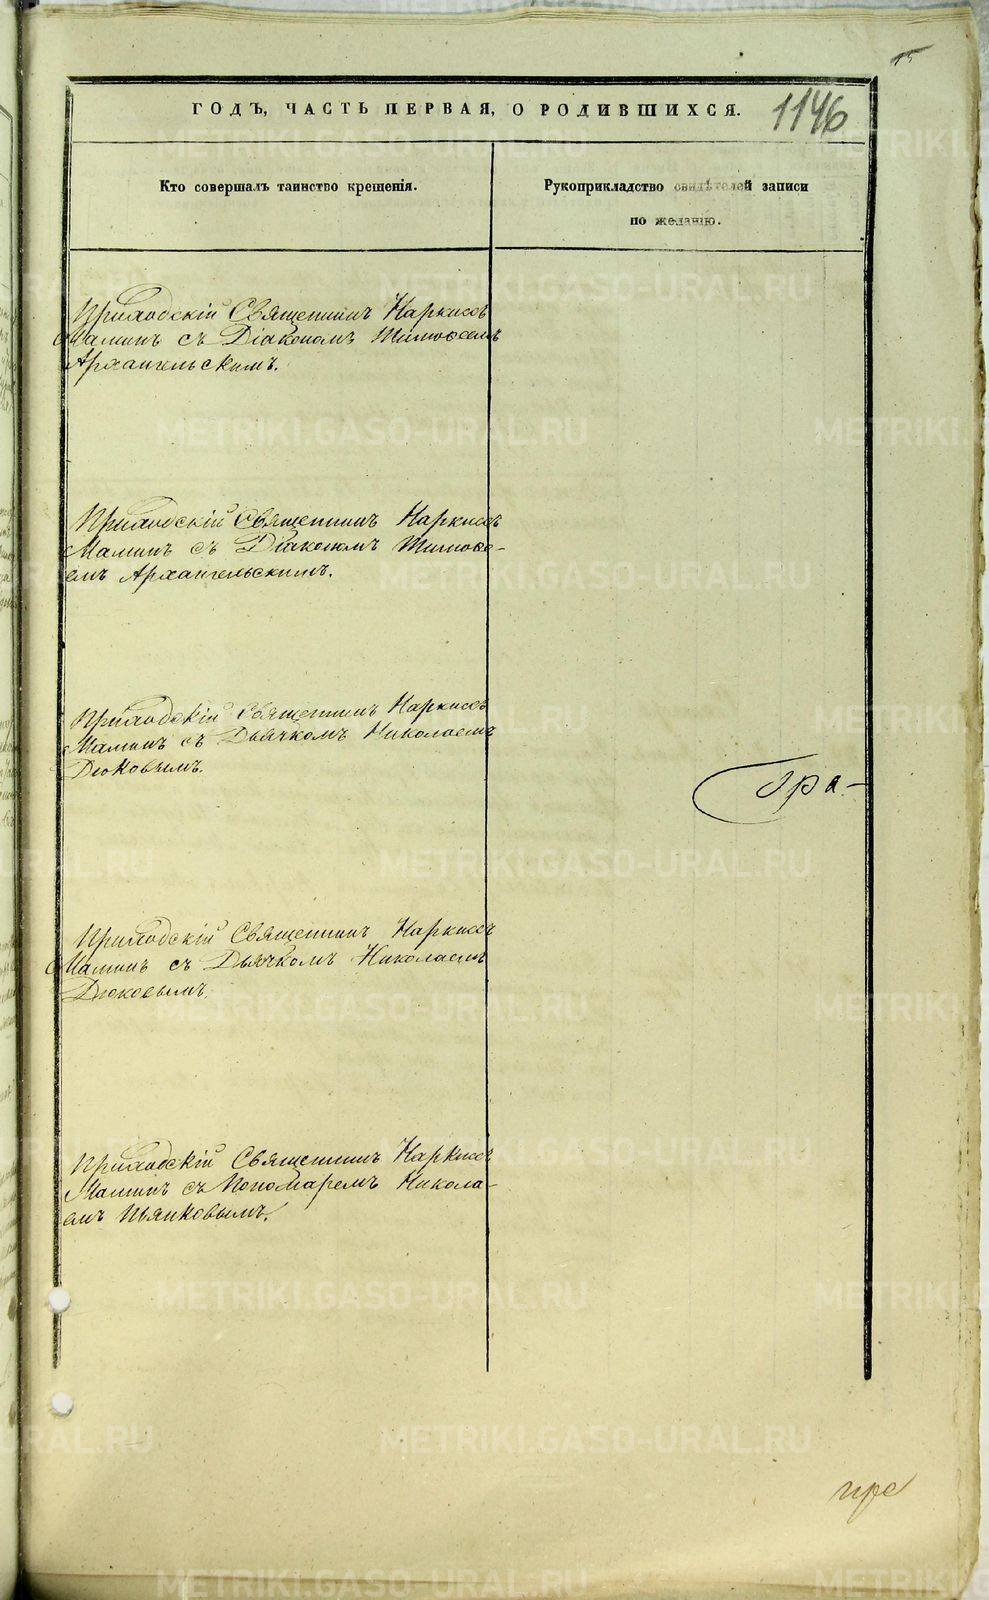 15
ГОДЪ, ЧАСТЬ ПЕРВАЯ, О РОДИВШИХСЯ.
1146
Кто совершалъ таинство крещенія.
Рукоприкладство свидѣтелей записи
по желанію.
Приходскій Священникъ Наркиссъ
Маминъ съ Діакономъ Тимоѳеемъ
Архангельскимъ.
Приходскій Священникъ Наркиссъ
Маминъ съ Діакономъ Тимоѳе-
емъ Архангельскимъ.
Приходскій Священникъ Наркиссъ
Маминъ съ Дьячкомъ Николаемъ
Дюковымъ.
Гра-
Приходскій Священникъ Наркиссъ
Маминъ съ Дьячкомъ Николаемъ
Дюковымъ.
Приходскій Священникъ Наркиссъ
Маминъ съ Пономаремъ Никола-
емъ Пьянковымъ.
METRIKI.GASO-URAL.RU